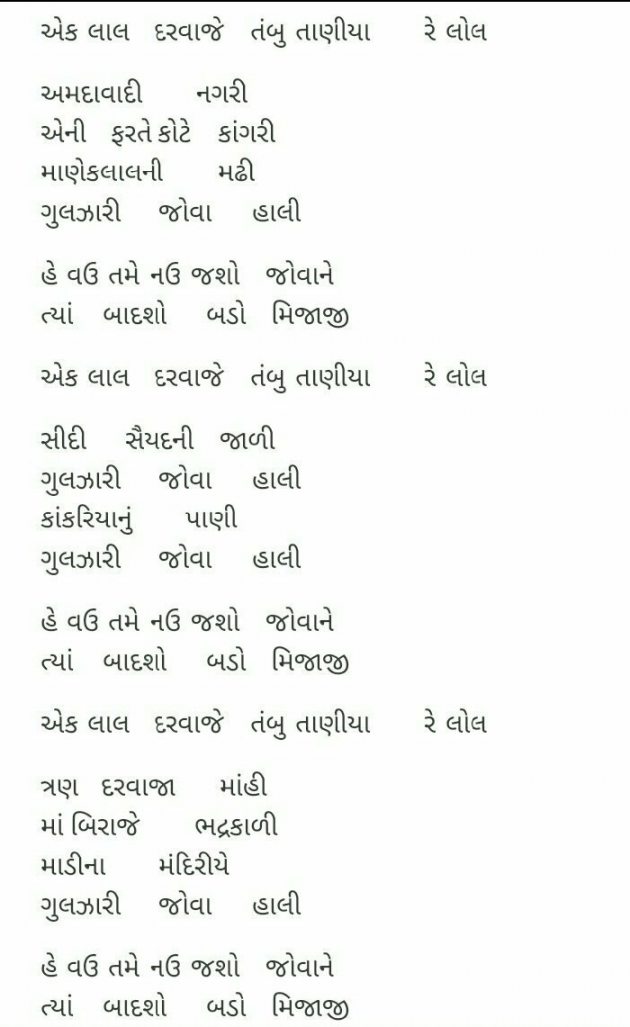 એક લાલ દરવાજે તંબુ તાણીયા રે લોલ
અમદાવાદી નગરી
એની ફરતે કોટે કાંગરી
માણેકલાલની મઢી
ગુલઝારી જોવા હાલી
હે વઉ તમે નઉ જશો જોવાને
ત્યાં બાદશો બડો મિજાજી
એક લાલ દરવાજે તંબુ તાણીયા રે લોલ
સીદી સૈયદની જાળી
ગુલઝારી જોવા હાલી
કાંકરિયાનું પાણી
ગુલઝારી જોવા હાલી
હે વઉ તમે નઉ જશો જોવાને
ત્યાં બાદશો બડો મિજાજી
એક લાલ દરવાજે તંબુ તાણીયા રે લોલ
ત્રણ દરવાજા માંહી
માં બિરાજે ભદ્રકાળી
માડીના મંદિરીયે
ગુલઝારી જોવા હાલી
હે વઉ તમે નઉ જશો જોવાને
ત્યાં બાદશો બડો મિજાજી